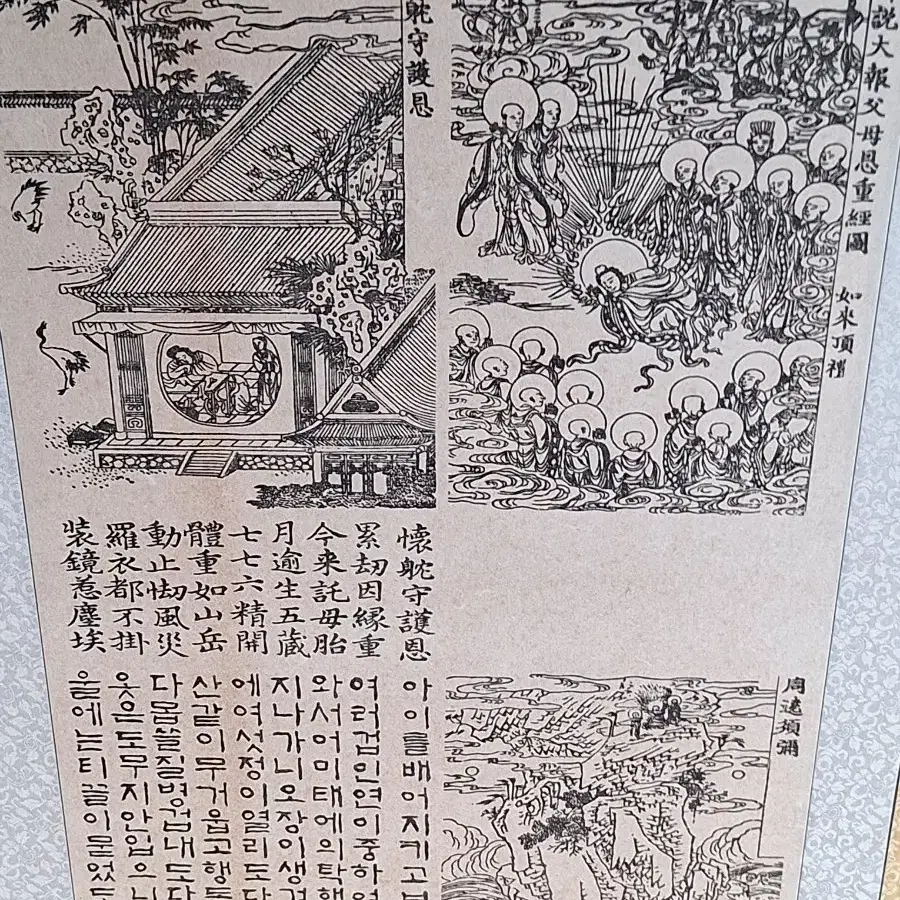 説大報父母恩重經圖
如来頂禮
躭守護恩
懷躭守護恩
累刧因緣重
今来託母胎
月逾生五蔵
七七六精開
體重如山岳
動止㤼風災
羅衣都不掛
裝鏡惹塵埃
周遶須彌
아이를배어지키고보
여러겁인연이중하여
와서어미태에의탁해
지나가니오장이생겨
에여섯정이열리도다
산같이무거웁고행동
다몹쓸질병겁내도다
옷은도무지안입으니
울에는티끌이묻었도